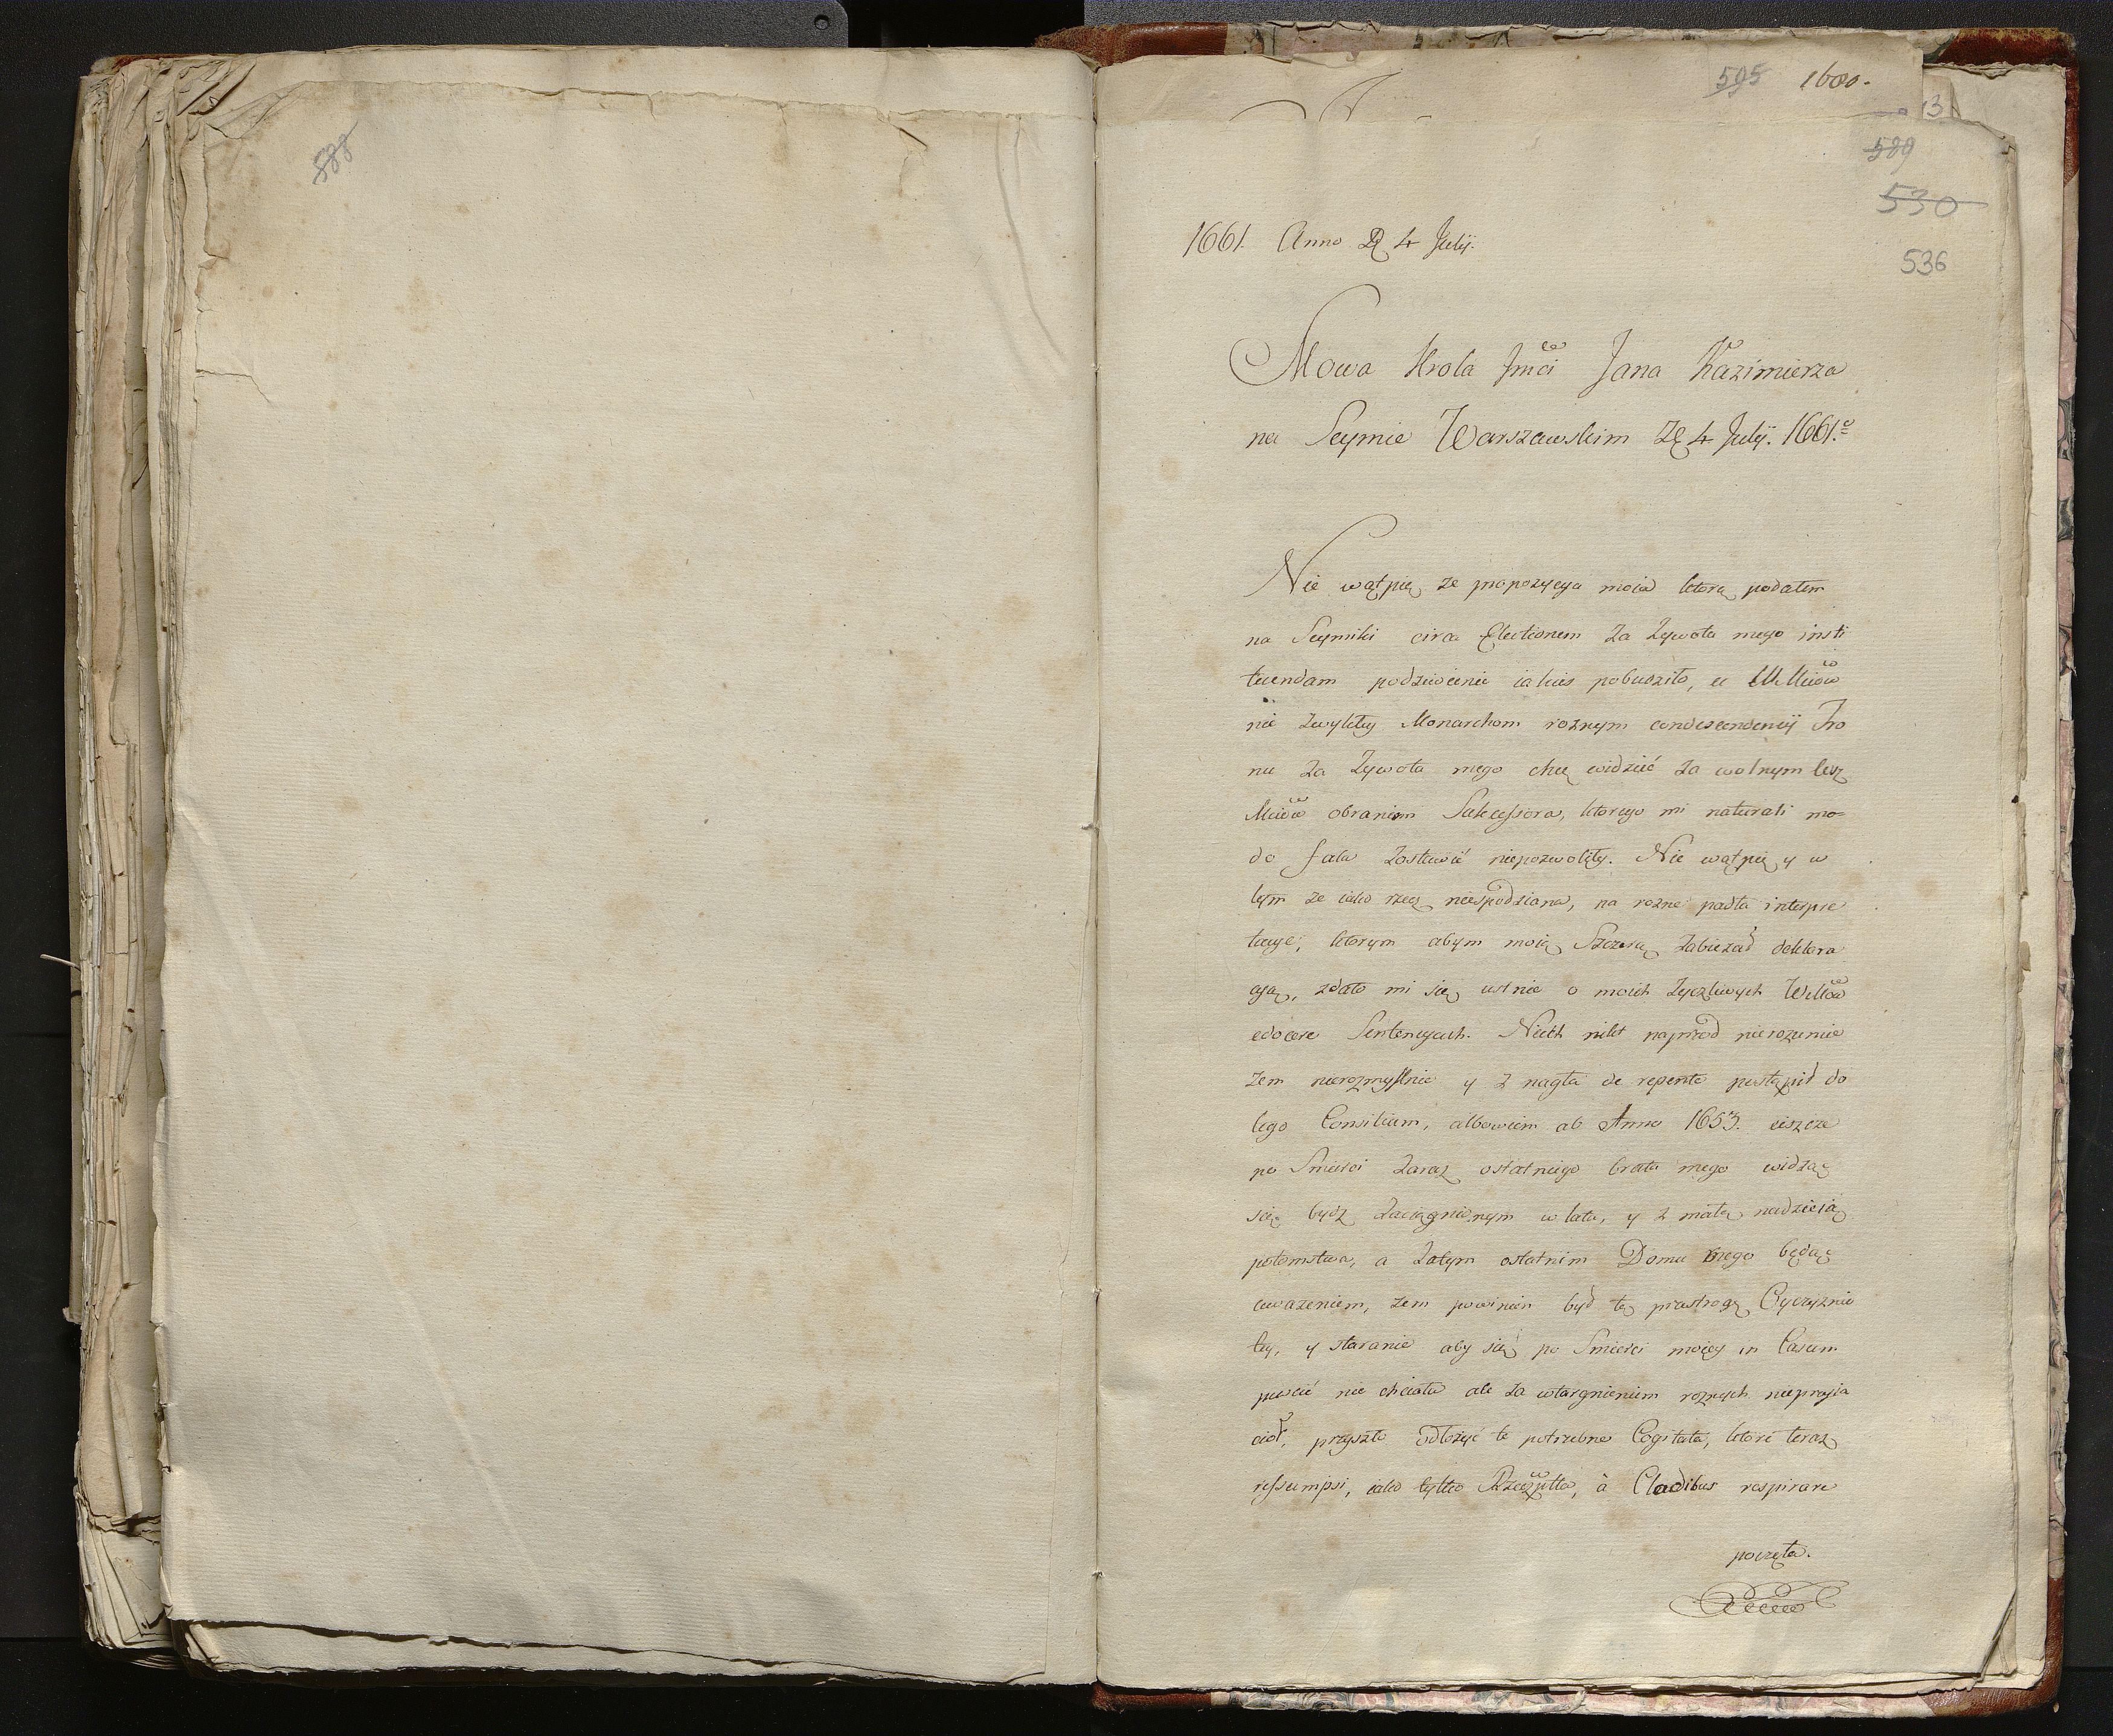 588
595 1680.
13
589
530
536
1661. Anno D 4 Julij.
Mowa Krola Jmci Jana Kazimierza
na Seymie Warszawskim D 4 Julij. 1661.
Nie wątpię ze propozycya moia ktorą podałem
na Seymiki circa Electionem za zywota mego insti
tuendam podziwienie iakieś pobudziło, u WMciow
nie zwykłey Monarchom roznym condescendencij Tro
nu za zywota mego chcę widzieć za wolnym
obraniem Sukcessora, ktorego mi naturali mo=
do fata zostawić niepozwoliły. Nie wątpię y w
tym ze iako rzecz niespodziana, na rozne padła interpre
tacye, ktorym abym moią Szczerą zabiezał deklara
cyą, zdało mi się ustnie o moich zyczliwych
edocere Sentencyach. Niech nikt naprzod nierozumie
zem nierozmyślnie y z nagła de repente postąpił do
tego Consilium, albowiem ab Anno 1653. ieszcze
po Smierci zaraz ostatniego brata mego widząc
się bydz zaciągnionym w lata, y z małą nadzieią
potomstwa, a zatym ostatnim Domu mego będąc
uwazeniem, zem powinien był tę przestrogę Oyczyznie
tey, y staranie aby się po Smierci moiey in Casum
puscić nie chciała ale za wtargnieniem roznych nieprzyia
cioł, przyszło odłozyć te potrzebne Cogitata, ktore teraz
ressumpsi, iako tylko Rzeczpltta, à Cladibus respirare
poczęła.